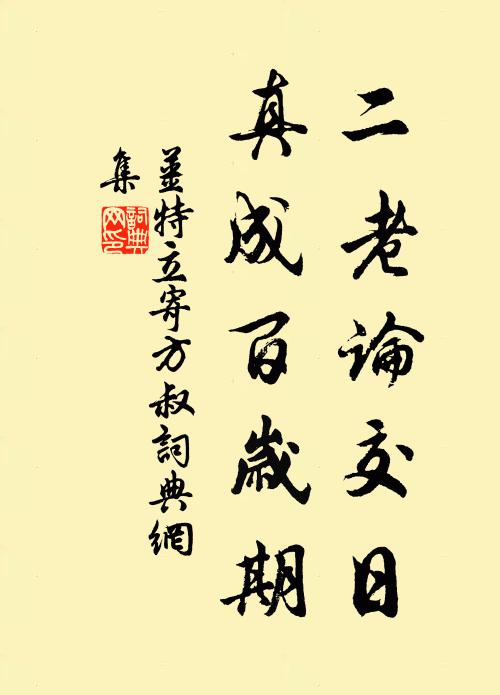 二老論交日
真成百歲期
姜特立寄方叔詞典網
集
詞典
网印